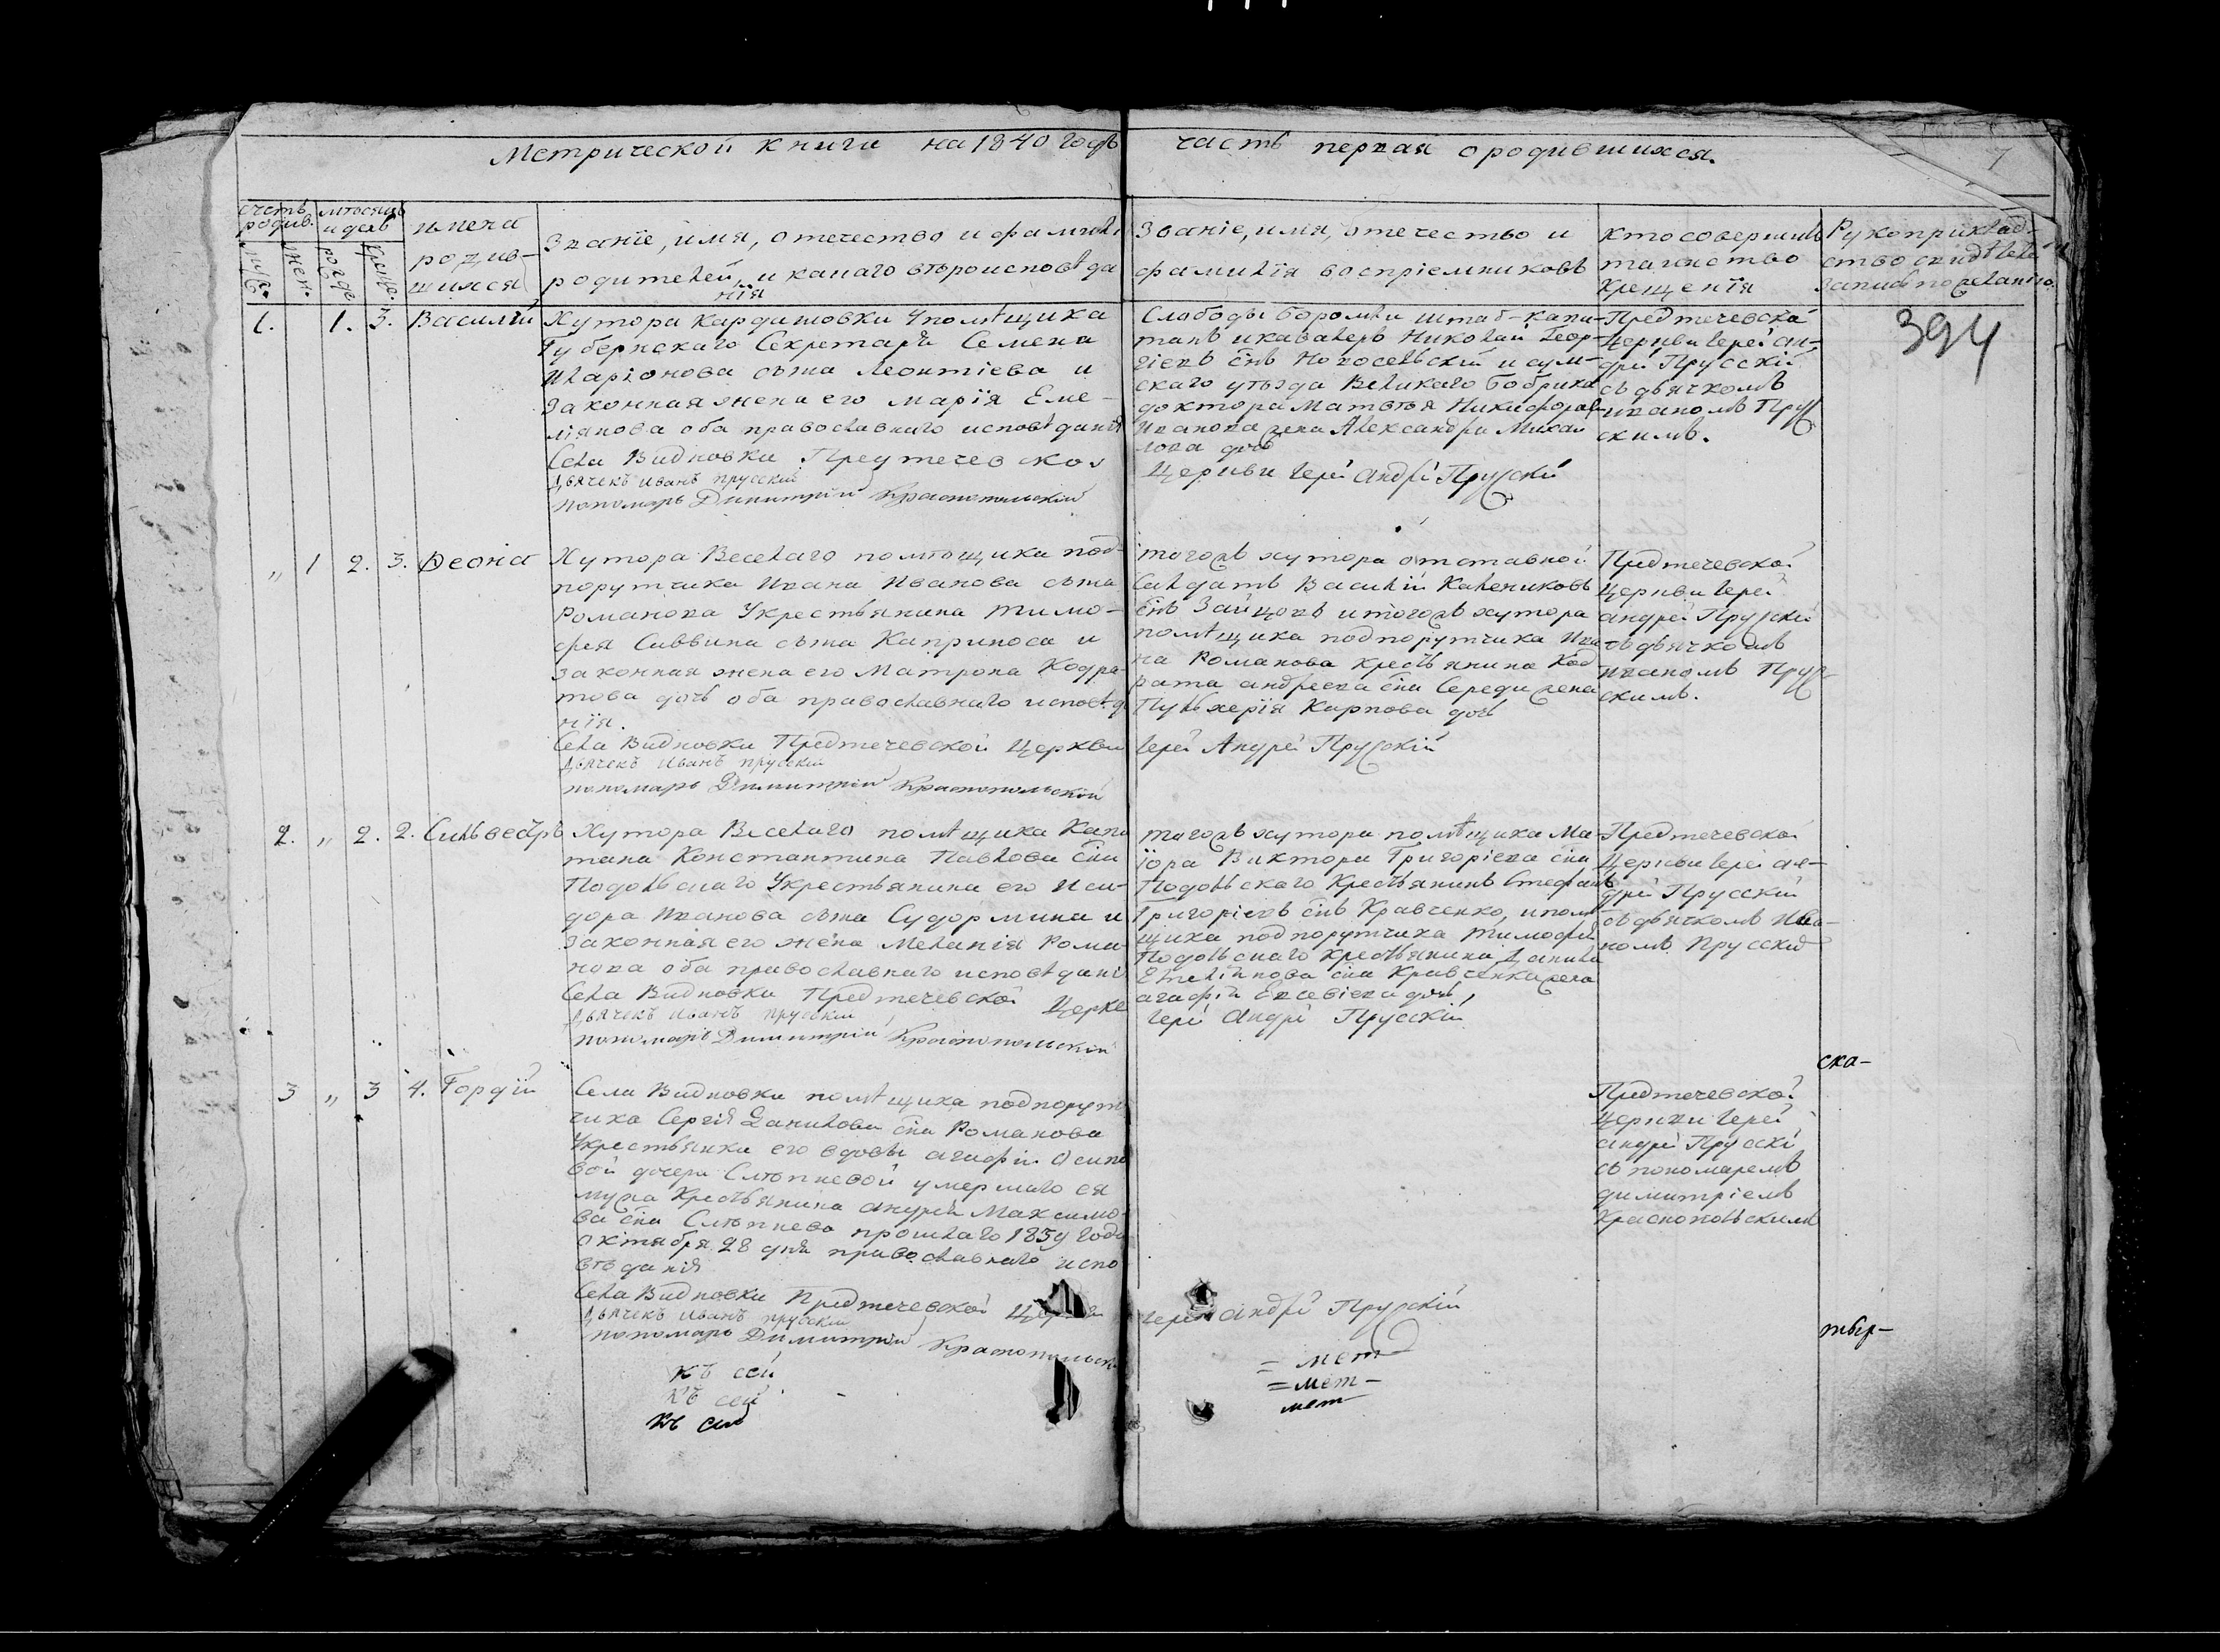 Метрической книги на 1840 годъ
часть первая о родившихся.
7
счетъ родив.
муж.
жен.
мѣсяцъ и день
рожде.
креще.
имена
родив-
шихся
Званїе, имя, отечество и фамилі
родителей, и какаго вѣроисповѣда
нїя
Званіе, имя, отечество и
фамилїя воспріемниковъ
Кто совершилъ
таинство
Крещенїя
Рукоприклад-
ство свидѣтелей
записи по желанію.
394
1. 1. 3. Василій
Хутора Кардашовки Упомѣщика
Губернскаго Секретаря Семена
Иларіонова сына Леонтіева и
законная жена его Марїя Еме-
ліянова оба православнаго исповѣданія
Села Видновки Предтечевской
Дьячекъ Иванъ Прусскій
пономарь Димитрій Краснопольскій
Слободы Боромли штаб-капи-
танъ и кавалеръ Николай Геор-
гіевъ сн҃ъ Новосельскій и сум-
скаго уѣзда Великаго Бобрика
доктора Матвѣя Никифорова
Иванова жена Александра Михай
лова дочь
Церкви Іерей Андрей Прусскій
Предтечевской
Церкви Іерей Ан-
дрей Прусскій
съ дьячкомъ
Иваномъ Прус
скимъ.
„ 1 2. 3. Феона
Хутора Веселаго помѣщика под-
порутчика Ивана Иванова сына
Романова Укрестьянина Тимо-
фея Саввина сына Каприноса и
законная жена его Матрона Кодра-
това дочь оба православнаго исповѣда
нїя.
Села Видновки Предтечевской Церкви
Дьячекъ Иванъ Прусскій
пономарь Димитрій Краснопольскій
тогожъ хутора отставной
Салдатъ Василій Калениковъ
сн҃ъ Зайцовъ и тогожъ хутора
помѣщика подпорутчика Ива
на Романова крестьянина Код-
рата Андреева сн҃а Середи жена
Пульхерїя Карпова дочь
Іерей Андрей Прусскій
Предтечевской
Церкви Іерей
Андрей Прусскій
съ дьячкомъ
Иваномъ Прус
скимъ.
2. „ 2. 2. Сильвестръ
Хутора Веселаго помѣщика Капи
тана Константина Павлова сн҃а
Подольскаго Укрестьянина его Иси-
дора Иванова сына Судормина и
законная его жена Меланія Рома-
нова оба православнаго исповѣдані
Села Видновки Предтечевской Церкв
Дьячекъ Иванъ Прусскій
пономарь Димитрій Краснопольскій
тогожъ хутора помѣщика Ма-
їора Виктора Григоріева сн҃а
Подольскаго Крестьянинъ Стефанъ
Григоріевъ сн҃ъ Кравченко, и помѣ
щика подпорутчика Тимофея
Подольскаго крестьянина Данила
Емеліянова сн҃а Кравченка жена
Агафія Евсевіева дочь,
Іерей Андрей Прусскій
Предтечевской
Церкви Іерей Ан-
дрей Прусскій
съ дьячкомъ Ива-
номъ Прусским
ска-
3 „ 3 4. Гордїй
Села Видновки помѣщика подпорут
чика Сергія Данилова сн҃а Романова
Укрестьянки его вдовы Агафіи Осипо
вой дочери Слѣпневой умершаго ея
мужа Крестьянина Андрея Максимо-
ва сн҃а Слѣпнева прошлаго 1839 года
Октября 28 дня православнаго испо
вѣданія
Села Видновки Предтечевской Церкви
Дьячекъ Иванъ Прусскій
пономарь Димитрій Краснопольск
Іерей Андрей Прусскій
Предтечевской
Церкви Іерей
Андрей Прусскі
съ пономаремъ
Димитріемъ
Краснопольскимъ
твер-
Къ сей
Къ сей
Къ сей
= мет-
= мет-
мет